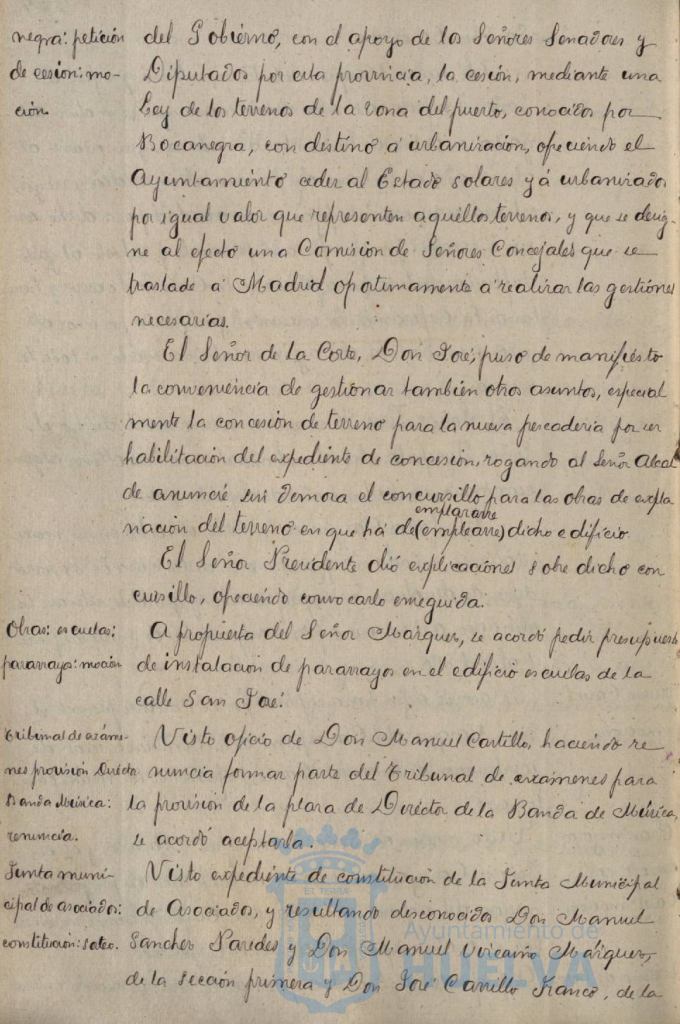 negra: petición
de cesion: mo-
ción.
del Gobierno, con el apoyo de los Señores Senadores y
Diputados por esta provincia, la cesión, mediante una
Ley de los terrenos de la zona del puerto, conocidos por
Bocanegra, con destino a urbanizacion, ofreciendo el
Ayuntamiento ceder al Estado solares yá urbanizados
por igual valor que representen aquellos terrenos, y que se desig-
ne al efecto una Comisión de Señores Concejales que se
traslade a Madrid oportunamente a realizar las gestiones
necesarias.
El Señor de la Corte, Don José, puso de manifiesto
la conveniencia de gestionar tambien otros asuntos, especial
mente la concesión de terreno para la nueva pescaderia por
habilitación del expediente de concesión, rogando al Señor Alcal
de anuncie sin demora el concursillo para las obras de expla
nacion del terreno en que há de (emplearse) dicho edificio.
emplazarse
El Señor Presidente dió explicaciones sobre dicho con
cursillo, ofreciendo convocarlo enseguida.
Obras: escuelas:
pararrayos: moción
A propuesta del Señor Márquez, se acordó pedir presupuesto
de instalación de pararrayos en el edificio escuelas de la
calle San José.
Tribunal de exáme-
nes provisión Director
Banda Música:
renuncia.
Visto oficio de Don Manuel Castillo, haciendo re
nuncia formar parte del Tribunal de exámenes para
la provisión de la plaza de Diréctor de la Banda de Música,
se acordó aceptarla.
Junta muni-
cipal de asociados:
constitución: sorteo.
Visto expediente de constitución de la Junta Municipal
de Asociados, y resultando desconocidos Don Manuel
Sanchez Paredes y Don Manuel Vizcaino Márquez,
de la sección primera y Don José Carrillo Franco, de la
Ayuntamiento de
HUELVA